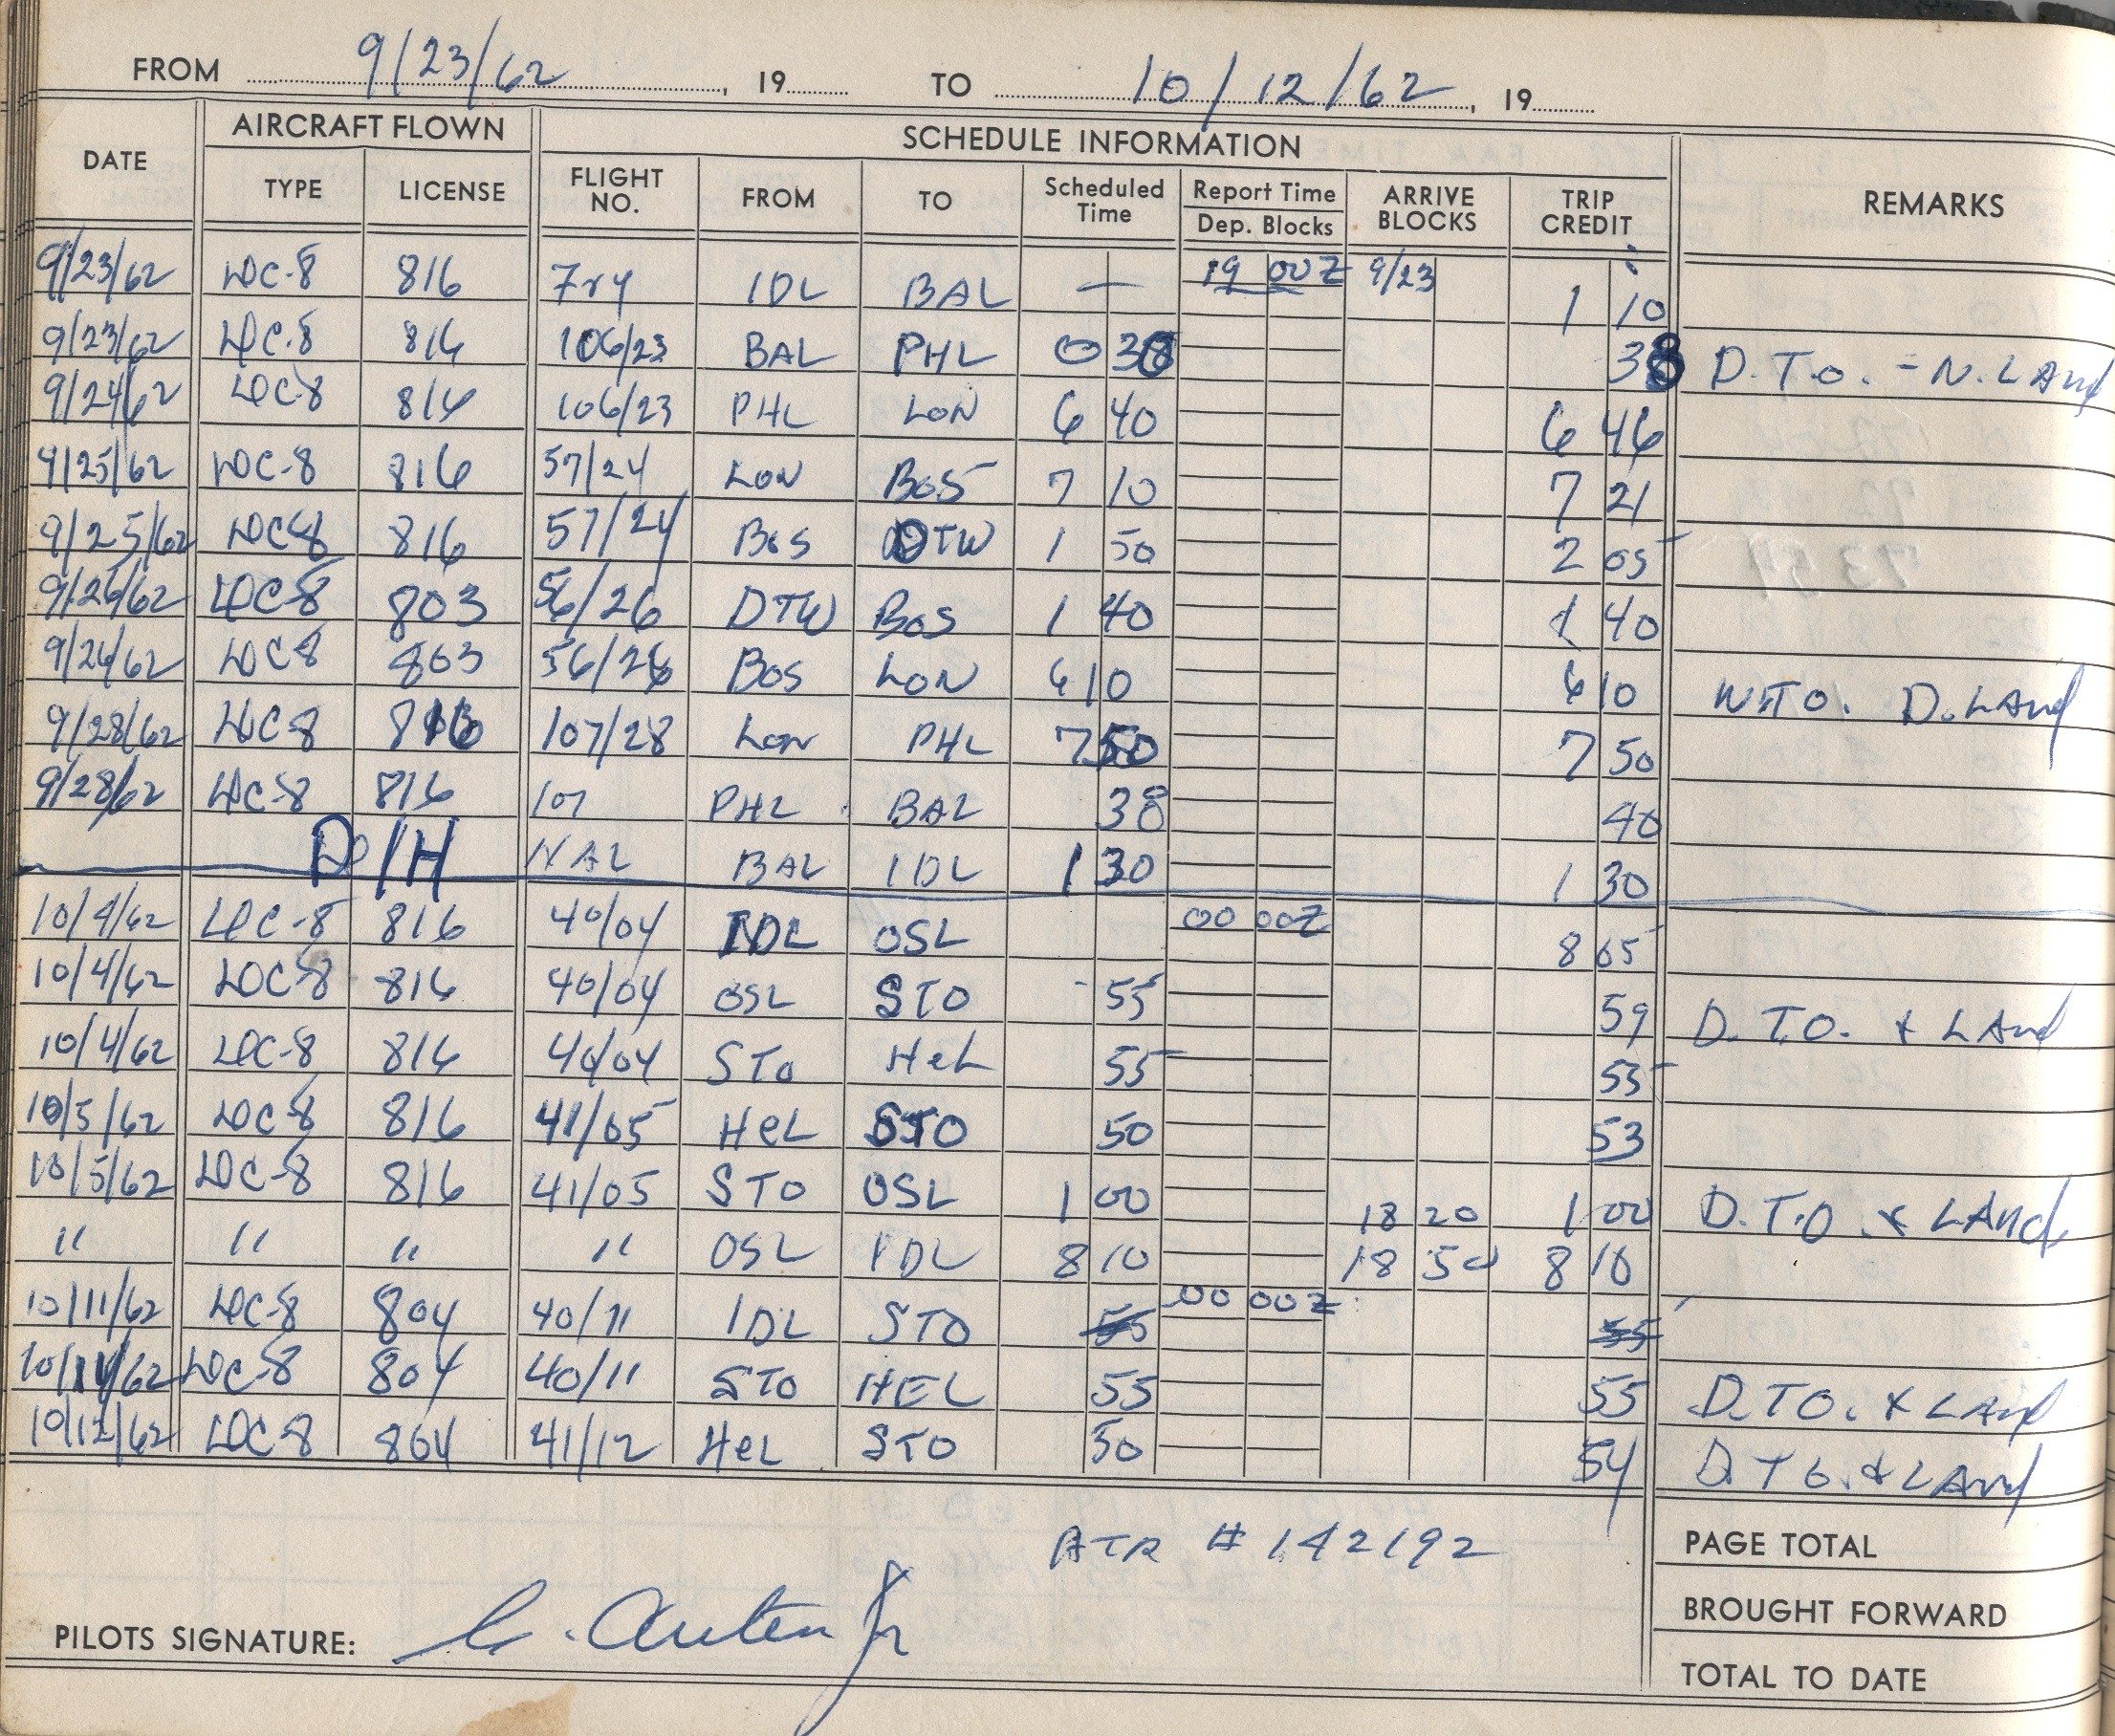 FROM 9/23/62, 19 TO 10/12/62, 19
DATE AIRCRAFT FLOWN SCHEDULE INFORMATION REMARKS
TYPE LICENSE FLIGHT NO. FROM TO Scheduled Time Report Time Dep. Blocks ARRIVE BLOCKS TRIP CREDIT
9/23/62 DC-8 816 Fry IDL BAL — 19 00Z 9/23 1 10
9/23/62 DC-8 816 106/23 BAL PHL 0 38 38 D.T.O. - N. LAND
9/24/62 DC-8 816 106/23 PHL LON 6 40 6 46
9/25/62 DC-8 816 57/24 LON BOS 7 10 7 21
9/25/62 DC-8 816 57/24 BOS DTW 1 50 2 05
9/26/62 DC-8 803 56/26 DTW BOS 1 40 1 40
9/26/62 DC-8 803 56/26 BOS LON 6 10 6 10 N.T.O. D. LAND
9/28/62 DC-8 816 107/28 LON PHL 7 50 7 50
9/28/62 DC-8 816 107 PHL BAL 38 40
D/H NAL BAL IDL 1 30 1 30
10/4/62 DC-8 816 40/04 IDL OSL 00 00Z 8 05
10/4/62 DC-8 816 40/04 OSL STO 55 59 D.T.O. & LAND
10/4/62 DC-8 816 40/04 STO HeL 55 55
10/5/62 DC-8 816 41/05 HeL STO 50 53
10/5/62 DC-8 816 41/05 STO OSL 1 00 18 20 1 00 D.T.O. & LAND
" " " " OSL IDL 8 10 18 50 8 10
10/11/62 DC-8 804 40/11 IDL STO 55 00 00Z 55
10/11/62 DC-8 804 40/11 STO HEL 55 55 D.T.O. & LAND
10/12/62 DC-8 804 41/12 HeL STO 50 54 D.T.O. & LAND
ATR # 142192
PAGE TOTAL
BROUGHT FORWARD
PILOTS SIGNATURE: C. Auten Jr
TOTAL TO DATE